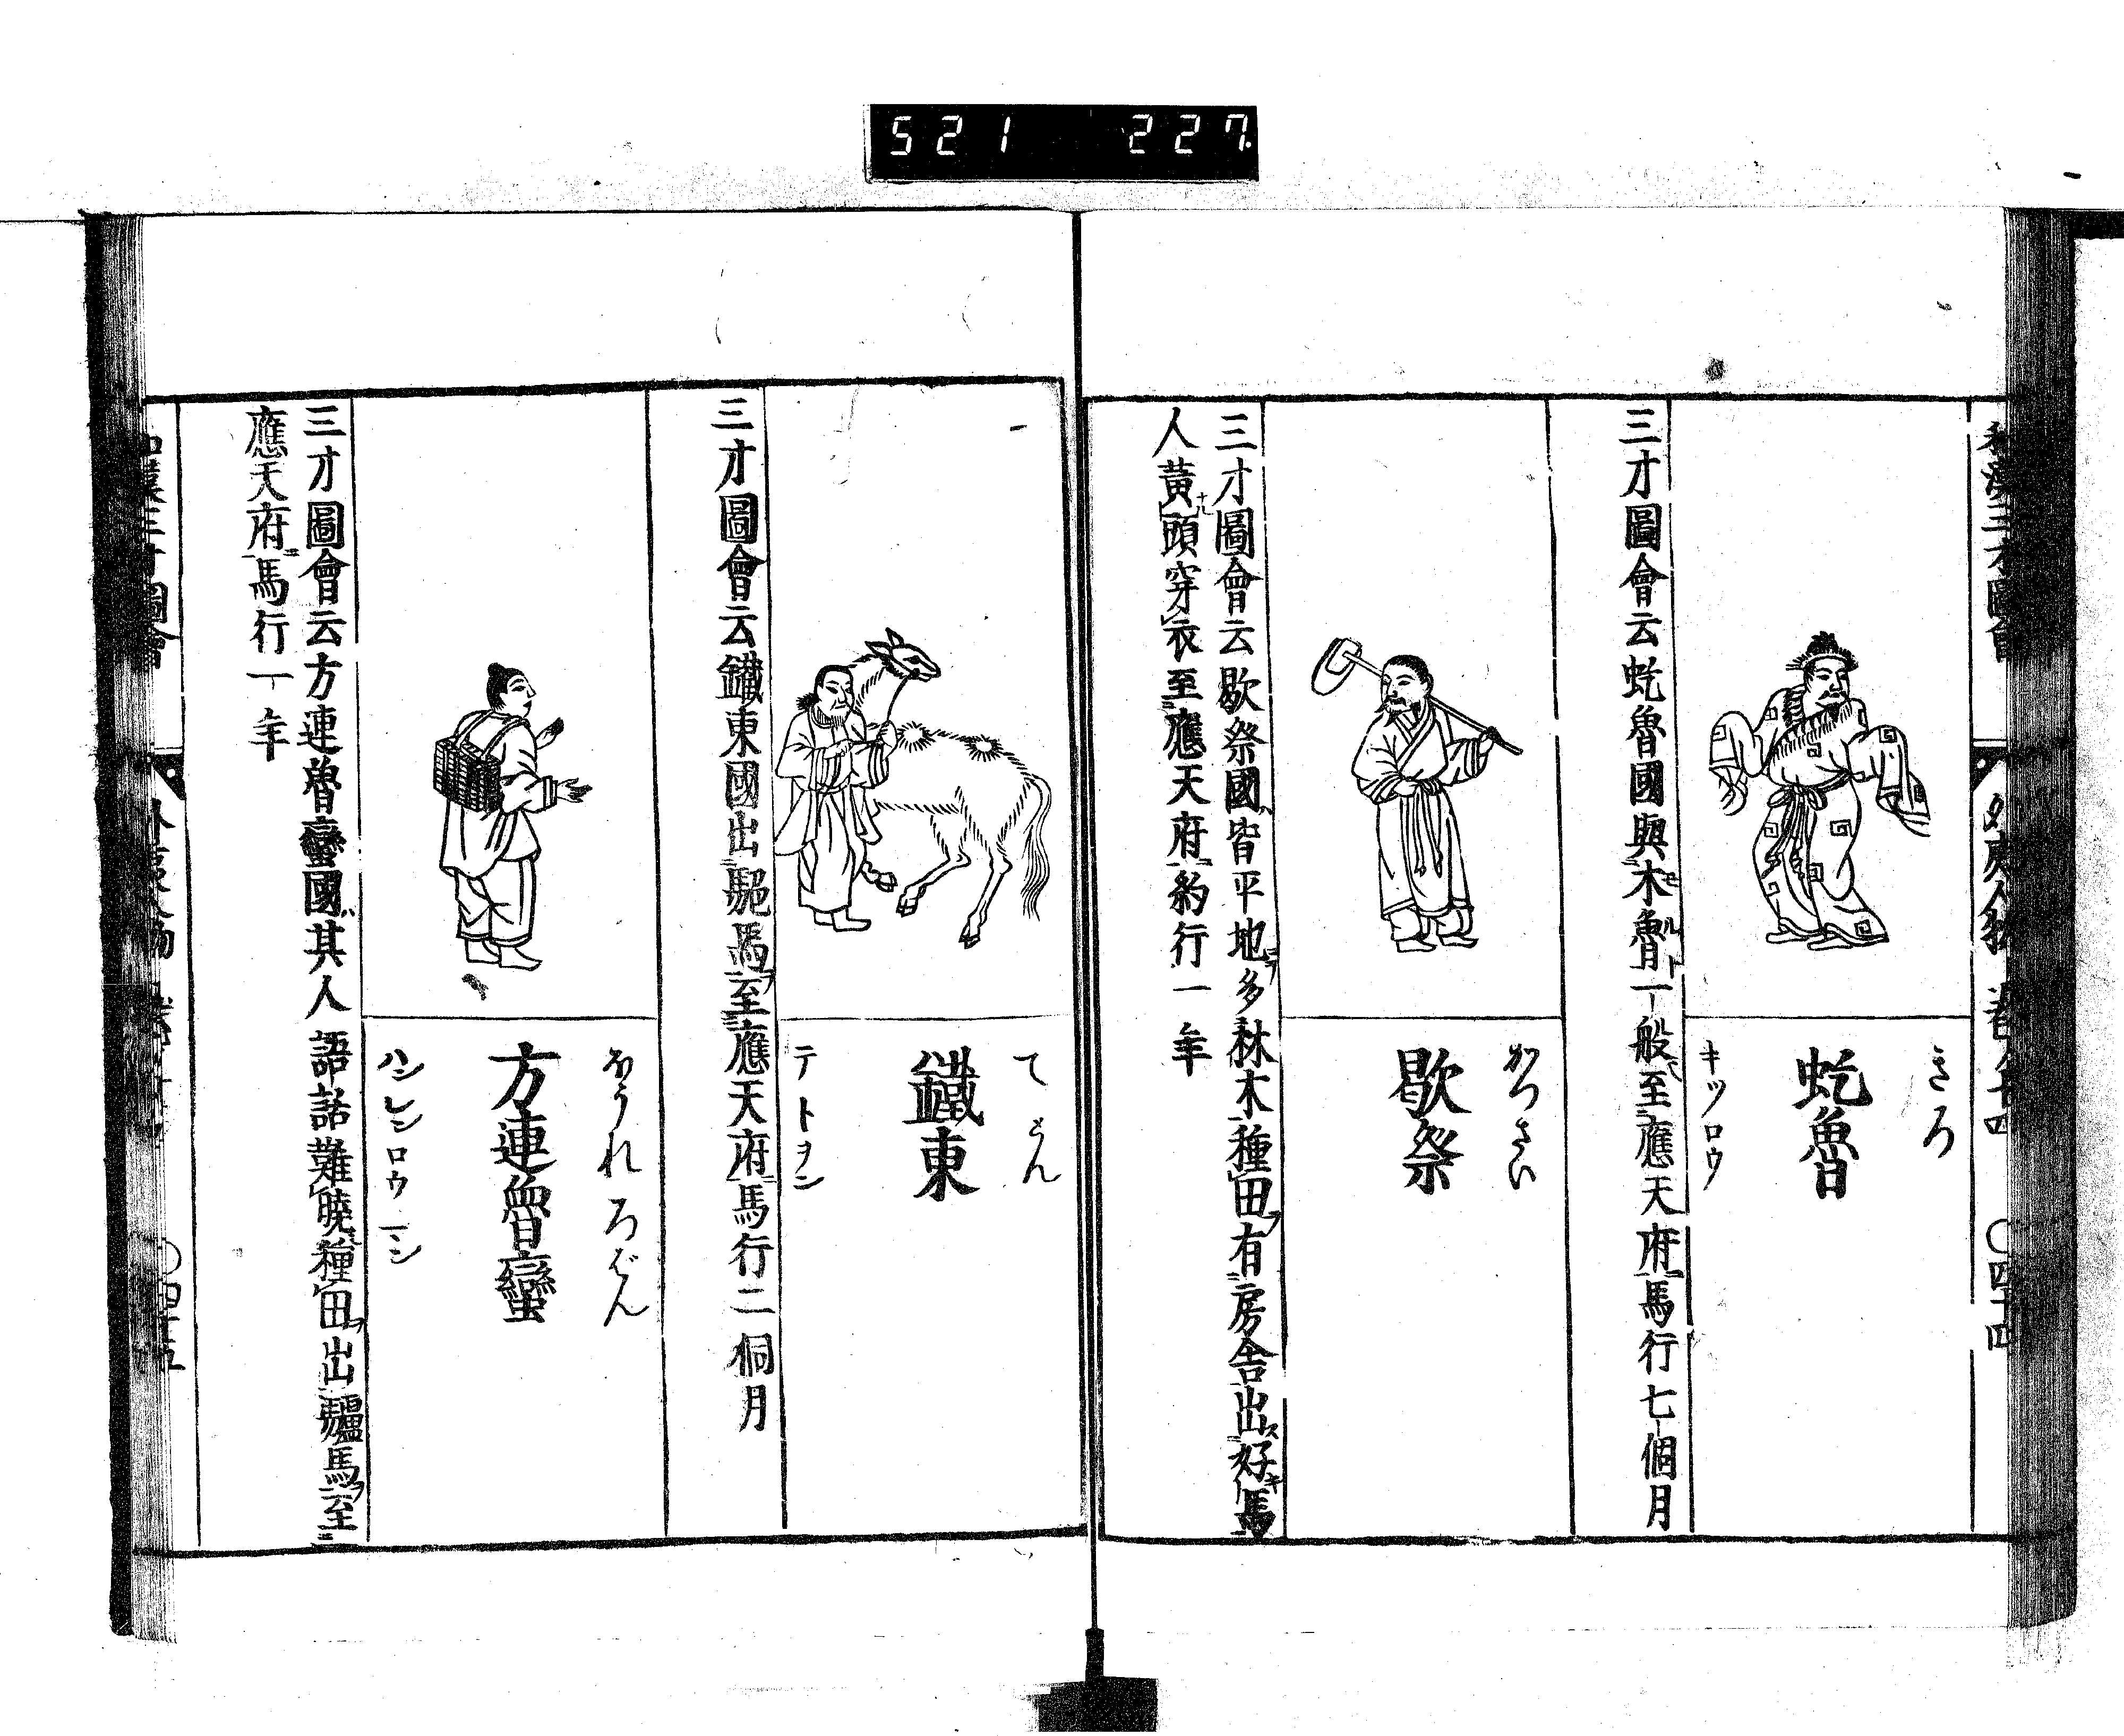 521 227
和漢三才圖會
外夷人物 卷十四 〇四十四
きろ
虼魯
キツロウ
三才圖會云虼魯國與木魯一般至應天府馬行七個月
かつさい
歇祭
三才圖會云歇祭國皆平地多林木種田有房舍出好馬
人黃頭穿衣至應天府約行一年
てとん
鐵東
テトヲン
三才圖會云鐵東國出駞馬至應天府馬行二個月
ほうれろばん
方連魯蠻
ハンレンロウマン
三才圖會云方連魯蠻國其人語話難曉種田出驢馬至
應天府馬行一年
和漢三才圖會
〇四十五